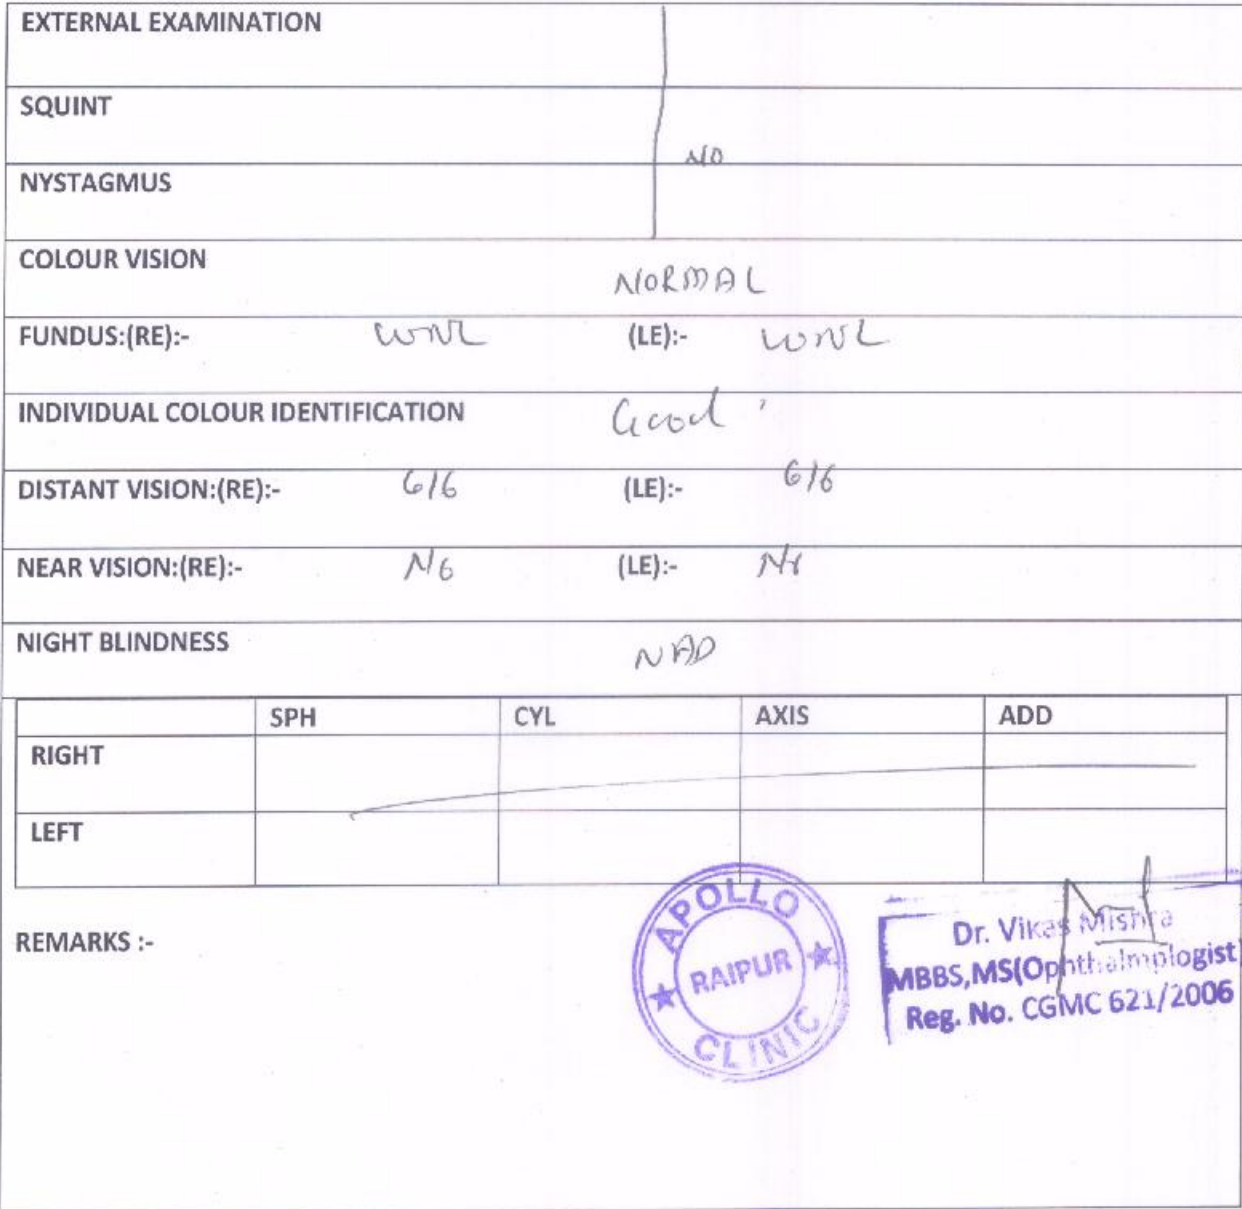 EXTERNAL EXAMINATION
SQUINT
NO
NYSTAGMUS
COLOUR VISION NORMAL
FUNDUS:(RE):- WNL (LE):- WNL
INDIVIDUAL COLOUR IDENTIFICATION Good
DISTANT VISION:(RE):- 6/6 (LE):- 6/6
NEAR VISION:(RE):- N6 (LE):- N6
NIGHT BLINDNESS NAD
SPH CYL AXIS ADD
RIGHT
LEFT
REMARKS :-
APOLLO
RAIPUR
CLINIC
Dr. Vikas Mishra
MBBS,MS(Ophthalmologist)
Reg. No. CGMC 621/2006